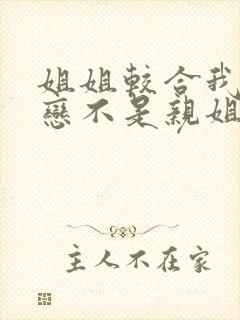 姐姐較合我
戀不是親姐
主人不在家